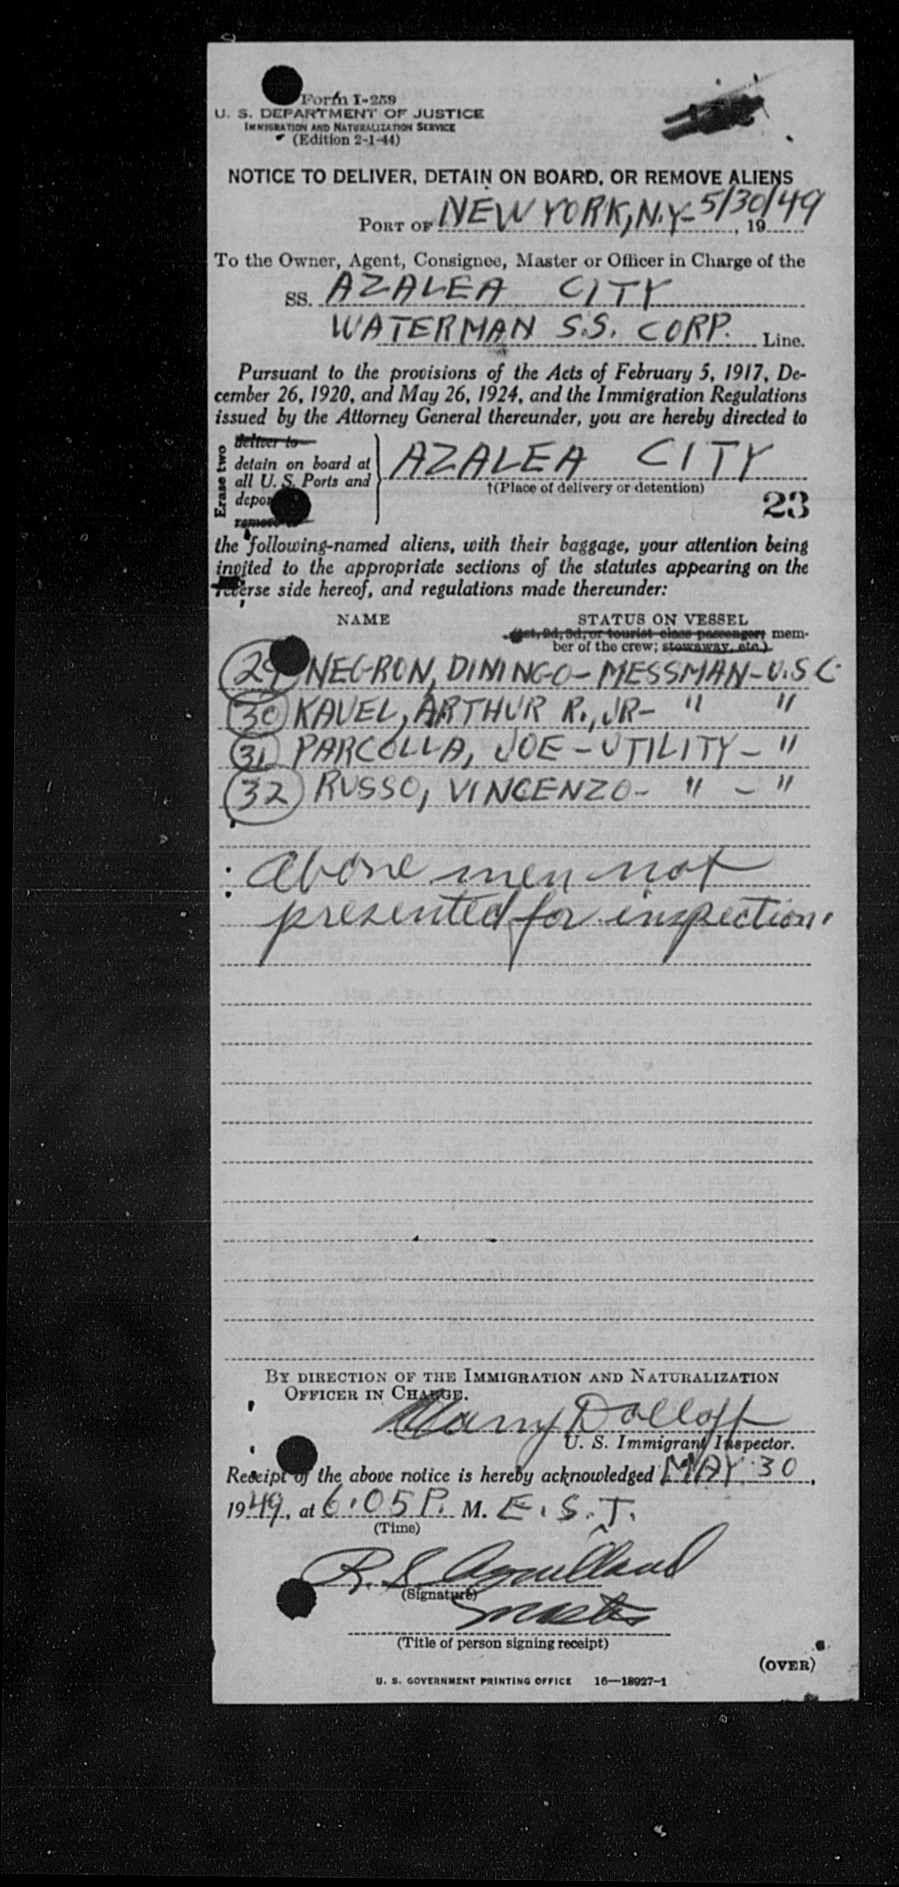 Form I-259
U. S. DEPARTMENT OF JUSTICE
IMMIGRATION AND NATURALIZATION SERVICE
(Edition 2-1-44)
NOTICE TO DELIVER, DETAIN ON BOARD, OR REMOVE ALIENS
PORT OF NEW YORK, N.Y. - 5/30/49, 19
To the Owner, Agent, Consignee, Master or Officer in Charge of the
SS. AZALEA CITY
WATERMAN S.S. CORP. Line.
Pursuant to the provisions of the Acts of February 5, 1917, De-
cember 26, 1920, and May 26, 1924, and the Immigration Regulations
issued by the Attorney General thereunder, you are hereby directed to
Erase two
deliver to
detain on board at
all U. S. Ports and
depor
remove to
AZALEA CITY
†(Place of delivery or detention)
23
the following-named aliens, with their baggage, your attention being
invited to the appropriate sections of the statutes appearing on the
reverse side hereof, and regulations made thereunder:
NAME STATUS ON VESSEL
(1st, 2d, 3d, or tourist class passenger; mem-
ber of the crew; stowaway, etc.)
29 NEGRON, DININGO - MESSMAN - U.S.C.
30 KAVEL, ARTHUR R., JR - " "
31 PARCOLLA, JOE - UTILITY - "
32 RUSSO, VINCENZO - " - "
Above men not
presented for inspection.
BY DIRECTION OF THE IMMIGRATION AND NATURALIZATION
OFFICER IN CHARGE.
Harry Dolloff
U. S. Immigrant Inspector.
Receipt of the above notice is hereby acknowledged MAY 30,
1949, at 6:05 P. M. E.S.T.
(Time)
R. S.
(Signature)
Master
(Title of person signing receipt)
(OVER)
U. S. GOVERNMENT PRINTING OFFICE 16—18927-1